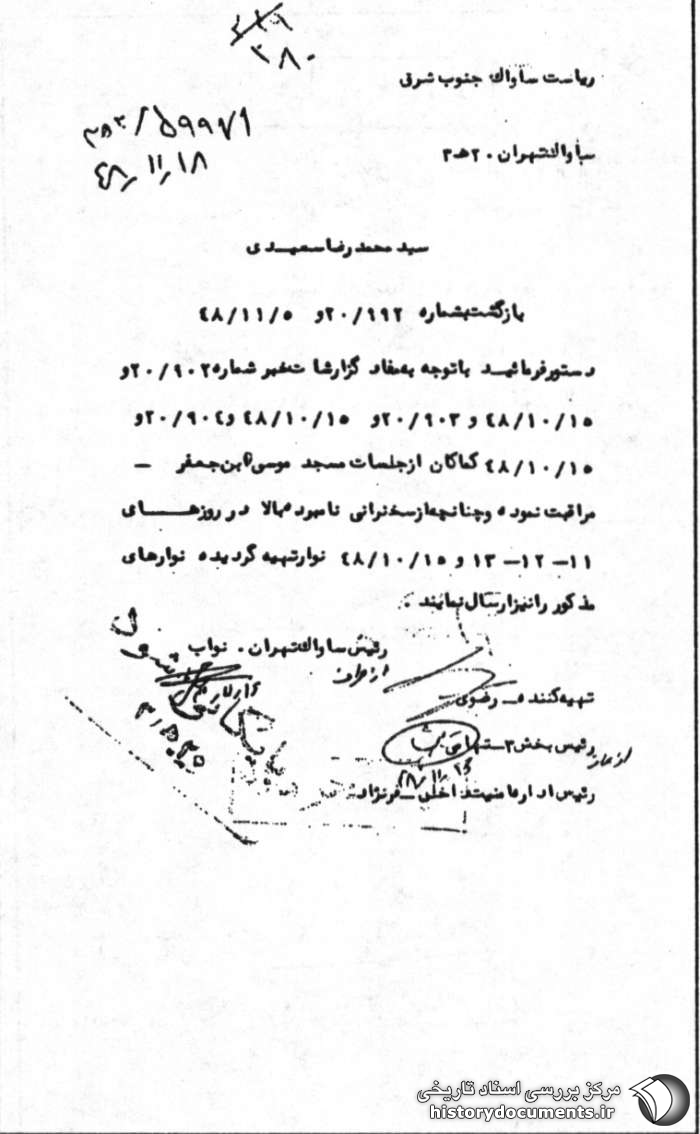 ۳۸۰
ریاست ساواک جنوب شرق
۵۹۹۷۱/
۴۸/۱۱/۱۸
ساواک تهران ۲۰ ه‍ ۳
سید محمد رضا سعیدی
بازگشت بشماره ۲۰/۹۹۲و ۴۸/۱۱/۵
دستور فرمائید باتوجه بمفاد گزارشات خبر شماره ۲۰/۹۰۲و
۴۸/۱۰/۱۵ و ۲۰/۹۰۳و ۴۸/۱۰/۱۵ و ۲۰/۹۰۴و
۴۸/۱۰/۱۵ کماکان از جلسات مسجد موسی ابن جعفر –
مراقبت نموده و چنانچه از سخنرانی نامبرده بالا در روزهای
۱۱– ۱۲– ۱۳ و ۴۸/۱۰/۱۵ نوار تهیه گردیده نوارهای
مذکور را نیز ارسال نمایند .
رئیس ساواک تهران . نواب
از طرف
تهیه کننده – رضوی
رئیس بخش ۳–
۱۱/۱۶
رئیس اداره امنیت داخلی – فرنژاد
بایگانی شود
مرکز بررسی اسناد تاریخی
historydocuments.ir